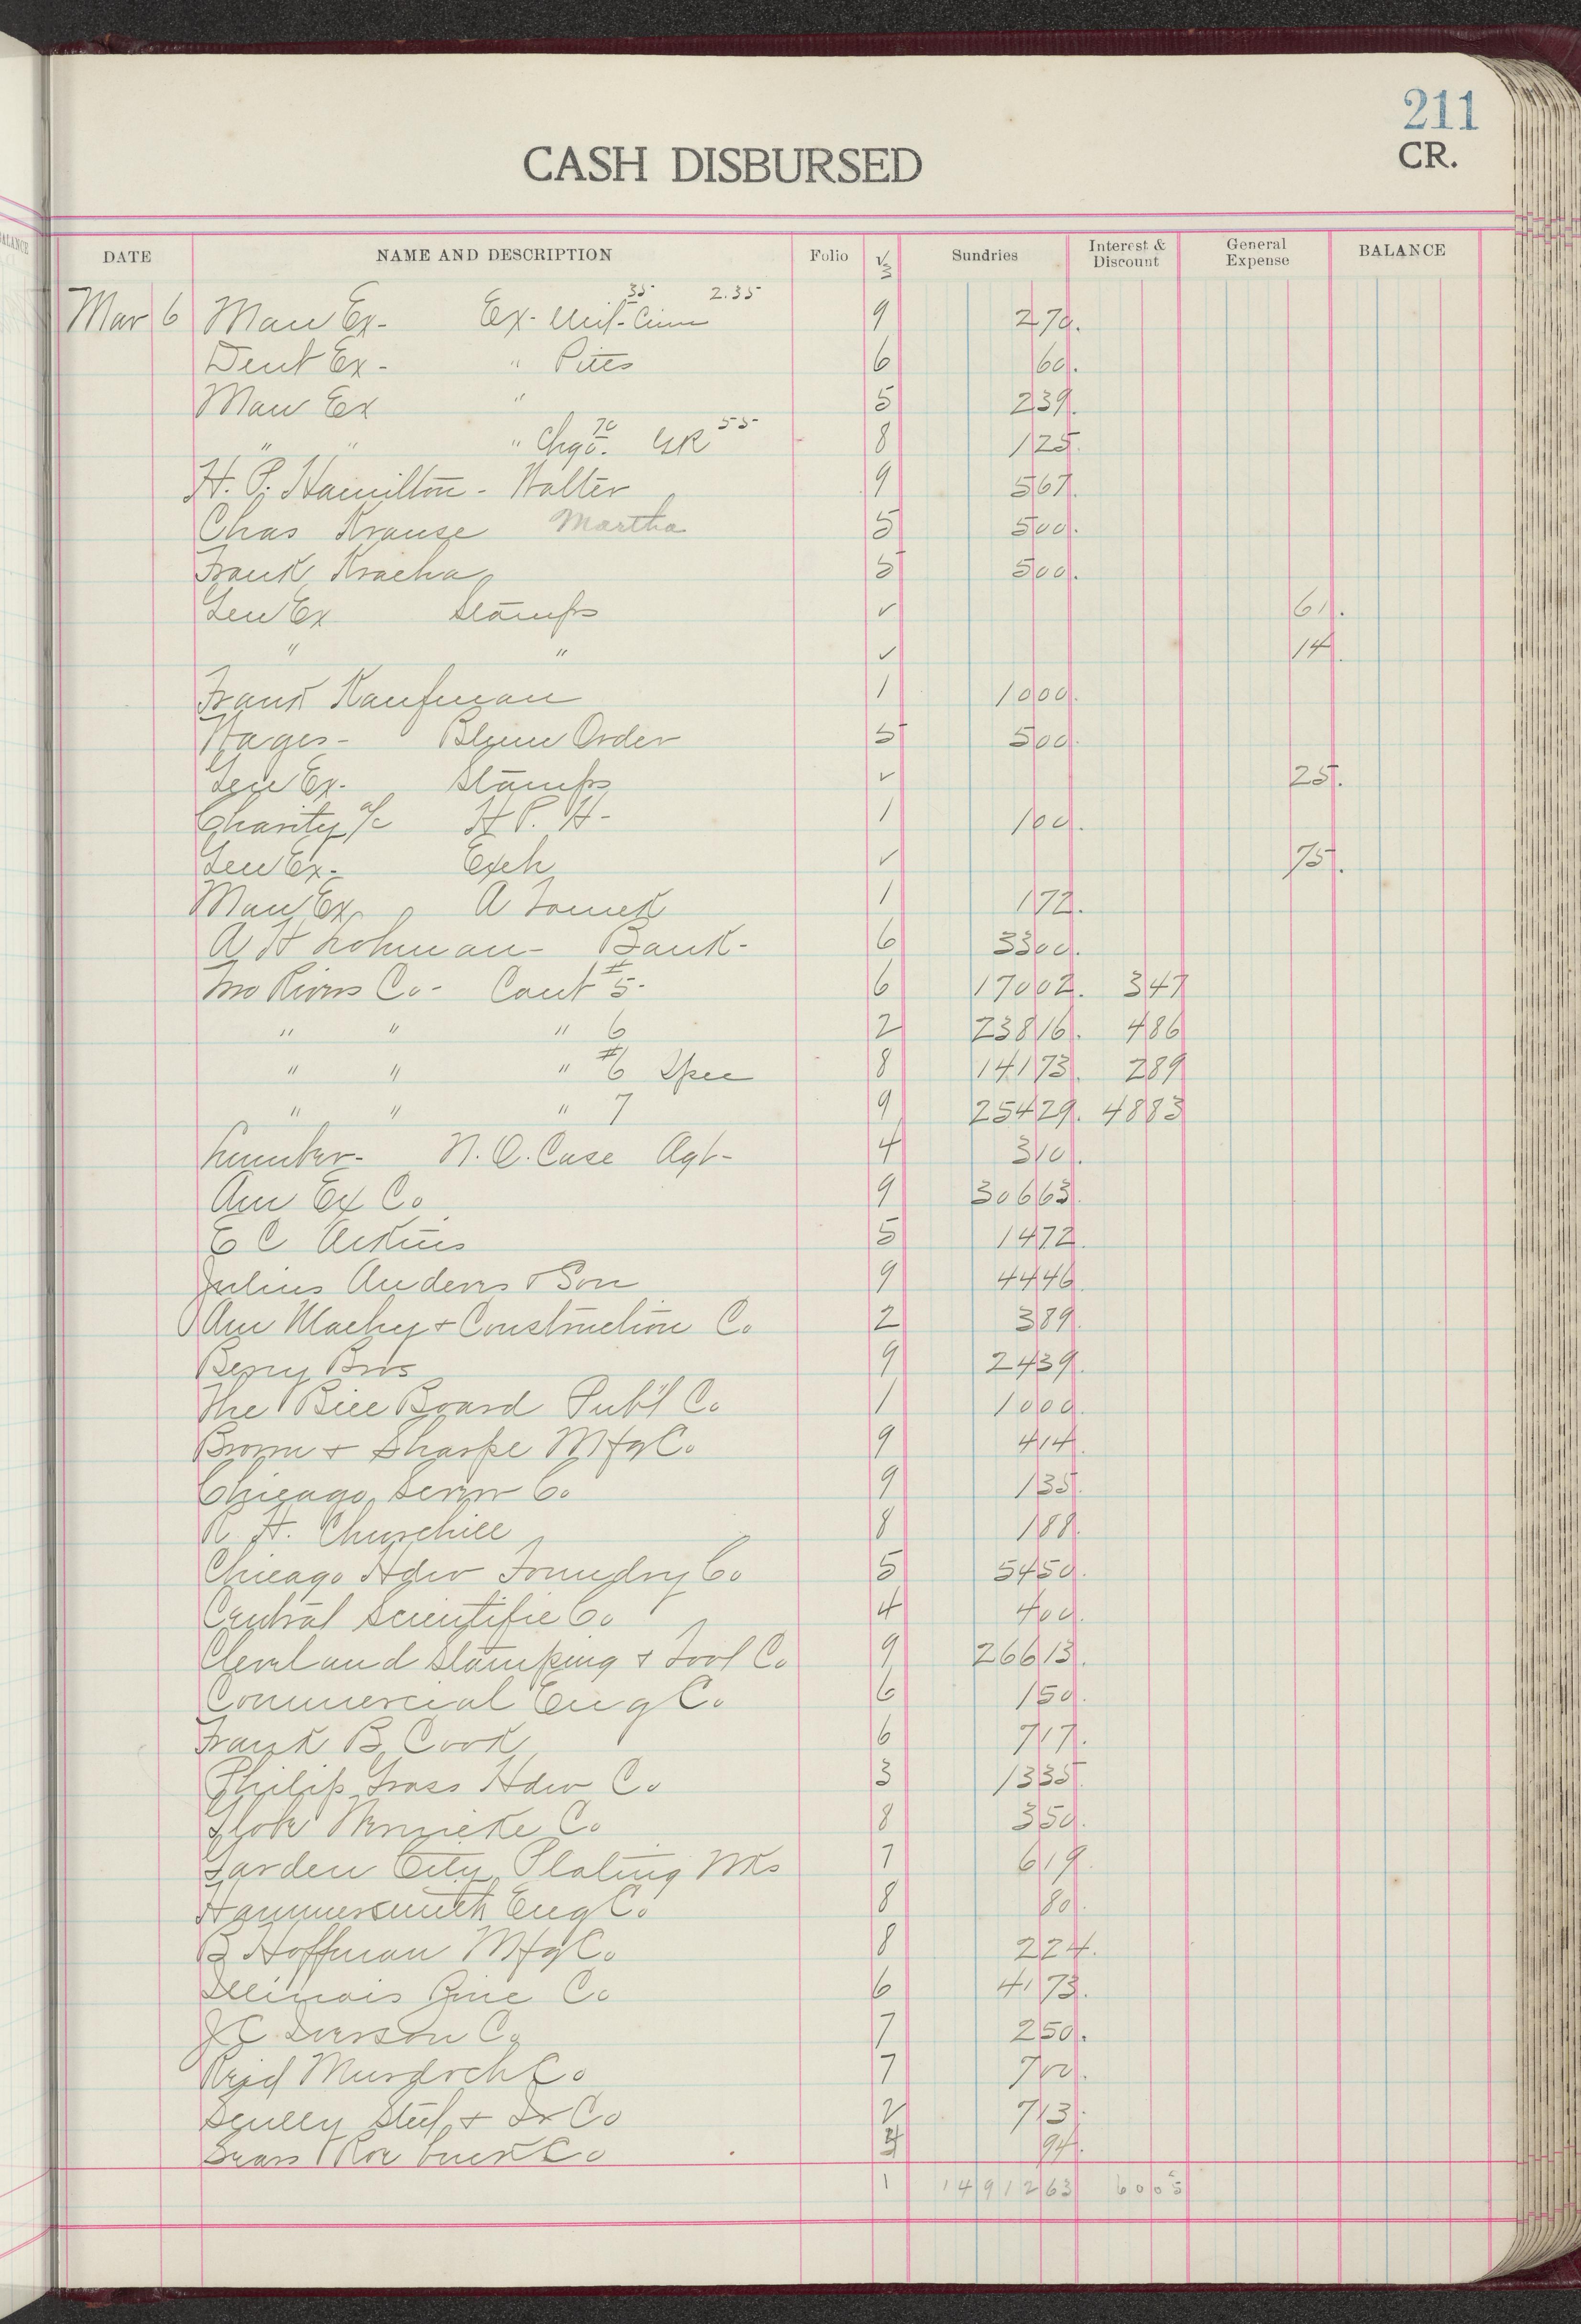 211
CASH DISBURSED CR.
DATE NAME AND DESCRIPTION Folio √3 Sundries Interest & Discount General Expense BALANCE
35 2.35
Mar 6 Man Ex- Ex- Mil- Cinn 9 270.
Dent Ex- " Pitts 6 60.
Man Ex " 5 239.
" " " Chgo. 70 GR 55 8 125.
H. P. Hamilton - Walter 9 567.
Chas Krause Martha 5 500.
Frank Kracha 5 500.
Gen Ex Stamps ✓ 61.
" " ✓ 14.
Frank Kaufman 1 1000.
Wages- Order 5 500.
Gen Ex- Stamps ✓ 25.
Charity a/c H P. H- 1 100.
Gen Ex- Exch ✓ 75.
Man Ex A Tomek 1 172.
A H Lohman- Bank- 6 3300.
Two Rivers Co- Cont #5- 6 17002. 347
" " " 6 2 23816. 486
" " " #6 Spec 8 14173. 289
" " " 7 9 25429. 4883
Lumber- N. O. Case Agt- 4 310.
Am Ex Co 9 30663.
E C Atkins 5 1472.
Julius Andrews & Son 9 4446
Am Machy & Construction Co 2 389.
Berry Bros 9 2439.
The Bill Board Publ Co 1 1000.
Brown & Sharpe Mfg Co 9 414.
Chicago Screw Co 9 135.
R. H. Churchill 8 188.
Chicago Hdw Foundry Co 5 5450.
Central Scientific Co 4 400.
Cleveland Stamping & Tool Co 9 26613.
Commercial Eng Co 6 150.
Frank B Cook 6 717.
Philip Gross Hdw Co 3 1335.
Globe Wernicke Co 8 350.
Garden City Plating Wks 7 619.
Hammersmith Eng Co 8 80.
B Hoffman Mfg Co 8 224.
Illinois Zinc Co 6 4173.
J C Iverson Co 7 250.
Reid Murdoch Co 7 700.
Scully Steel & Ir Co 2 713.
Sears Roebuck Co 4 94.
1 1491263 6005